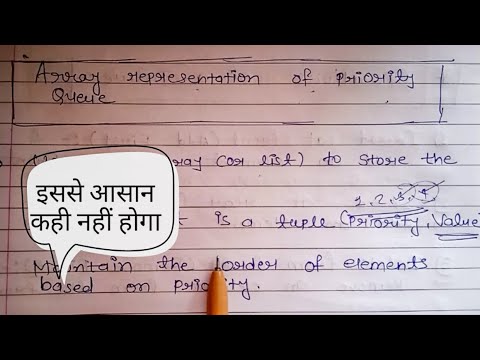 Array representation of priority
Queue
array (or list) to store the
1, 2, 3,
is a tuple (priority, value)
Maintain the order of elements
based on priority.
इससे आसान
कही नहीं होगा